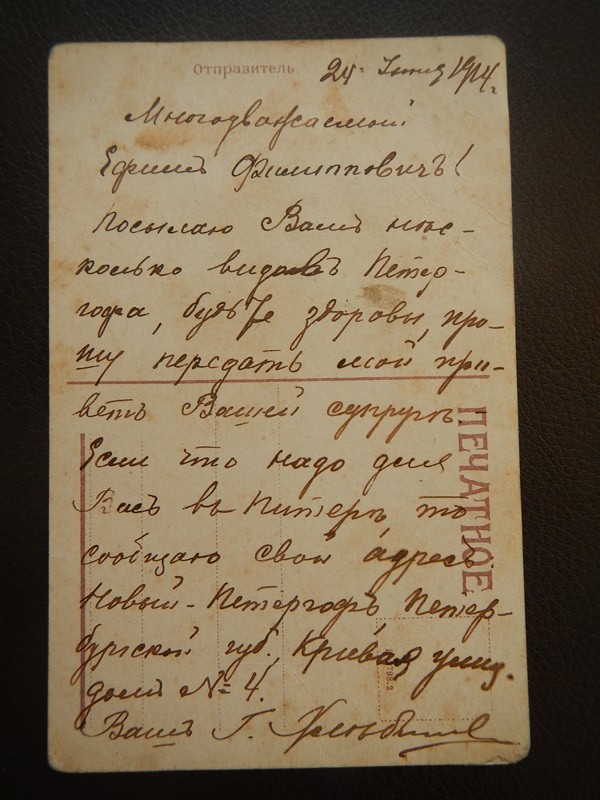 Отправитель.
24 Іюня 1914 г.
Многоуважаемой
Ефимъ Филипповичъ!
посылаю Вамъ нѣс-
колько видовъ Петер-
гофа, будьте здоровы, про-
шу передать мой при-
ветъ Вашей супругѣ
Если что надо для
Васъ въ Питерѣ то
сообщаю свой адресъ
Новый-Петергофъ, Петер-
бургской губ. Кривая улиц.
домъ № 4.
Вашъ Г.
ПЕЧАТНОЕ